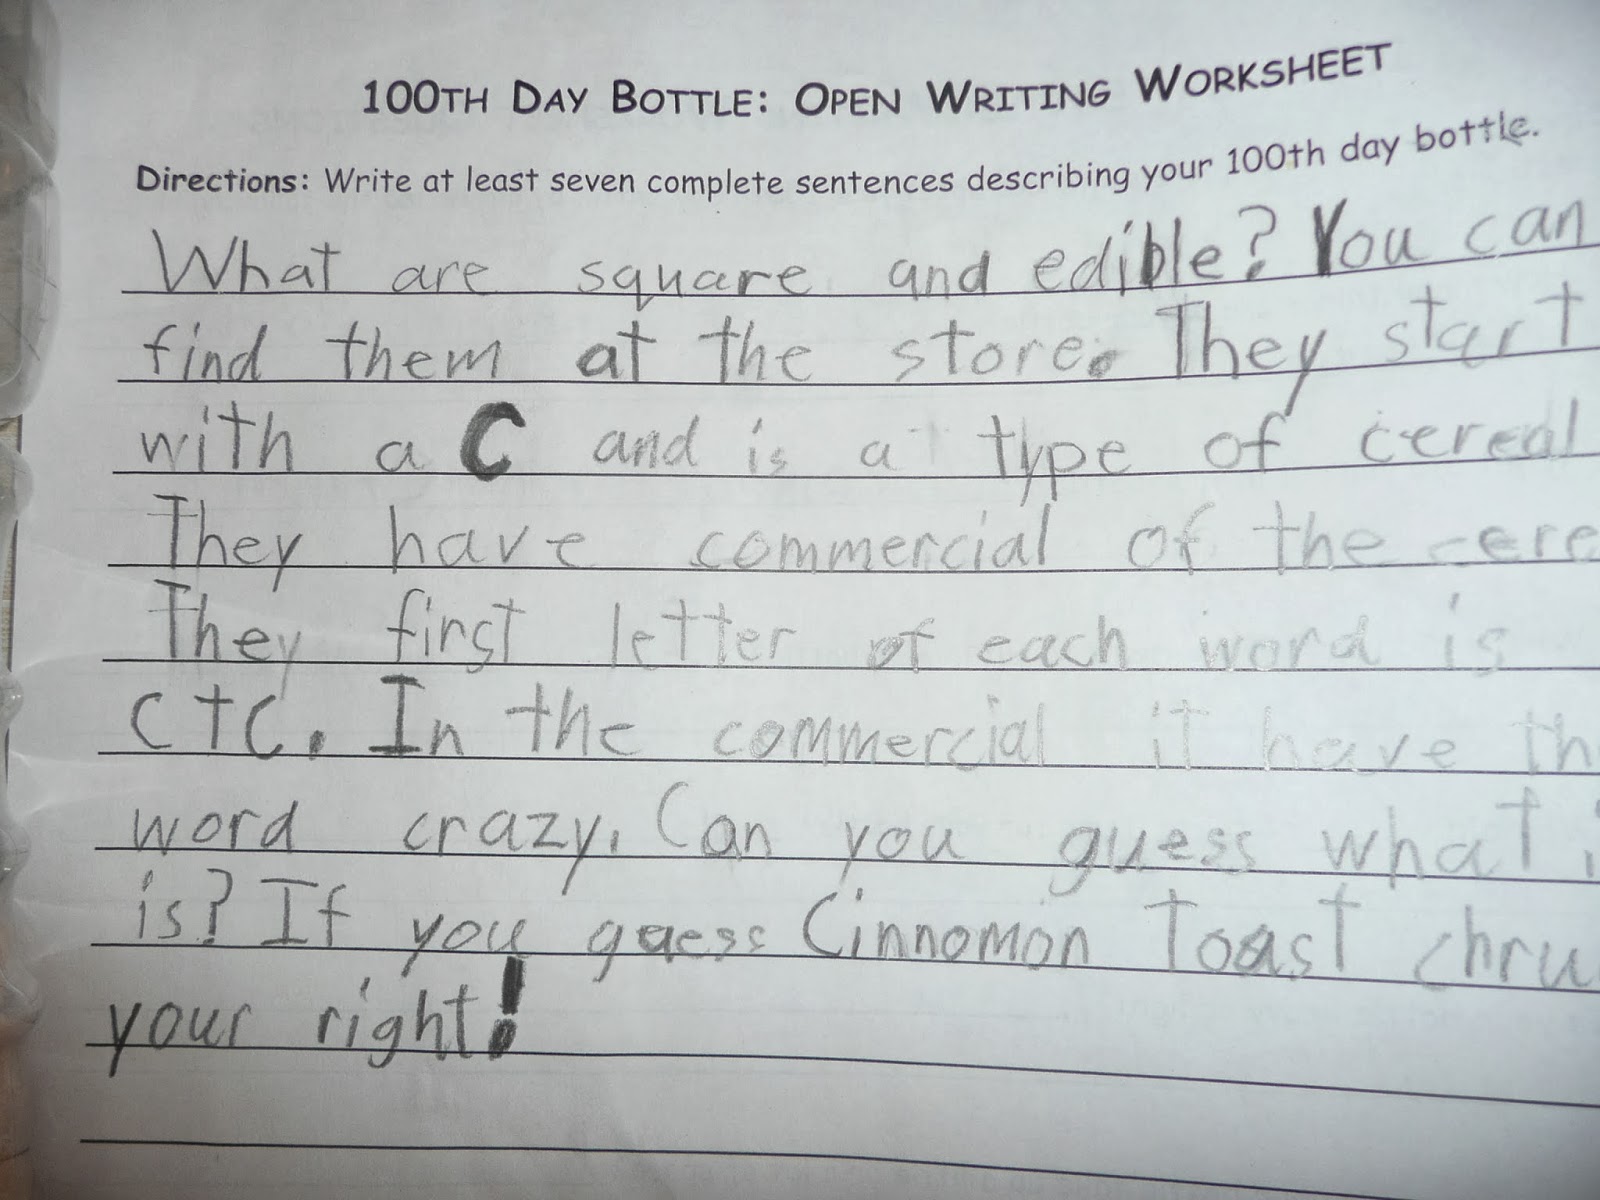 100TH DAY BOTTLE: OPEN WRITING WORKSHEET
Directions: Write at least seven complete sentences describing your 100th day bottle.
What are square and edible? You can
find them at the store. They start
with a C and is a type of cereal
They have commercial of the cere
They first letter of each word is
CTC. In the commercial it have th
word crazy. Can you guess what i
is? If you guess Cinnomon Toast chru
your right!